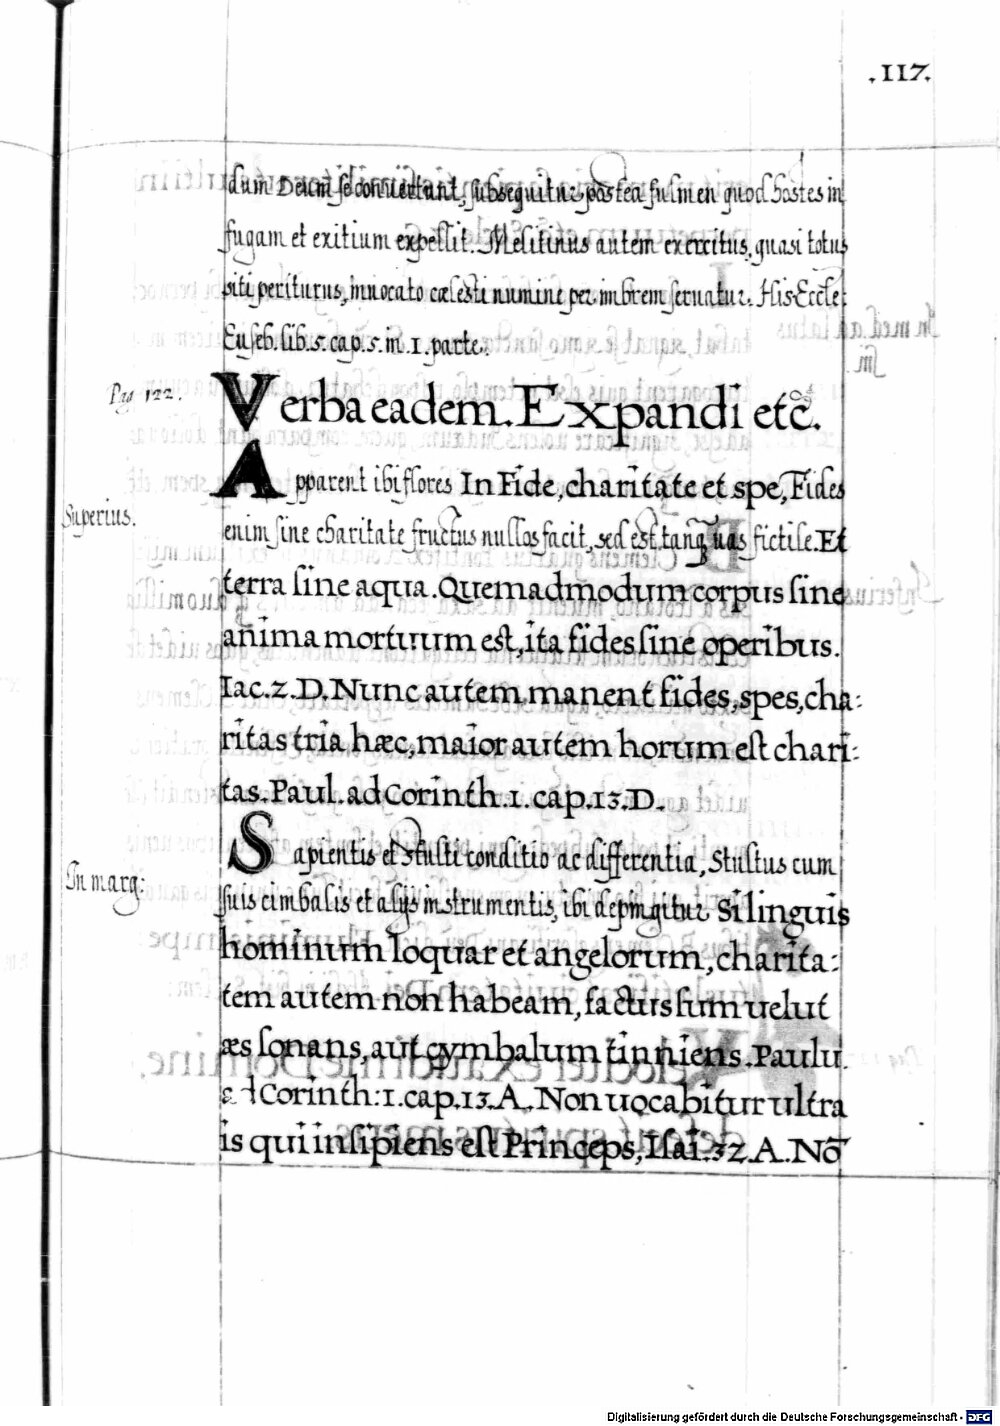 .117.
dum Deum se conuertunt, subsequitur postea fulmen quod hostes in
fugam et exitium expellit. Melitinus autem exercitus, quasi totus
siti periturus, inuocato cælesti numine per imbrem seruatur. His. Eccle:
Euseb. lib. 5. cap. 5. in 1. parte.
Pag 122.
Verba eadem. Expandi etc.
Superius.
Apparent ibi flores In Fide, charitate et spe, Fides
enim sine charitate fructus nullos facit, sed est tanq̄ uas fictile. Et
terra sine aqua. Quemadmodum corpus sine
anima mortuum est, ita fides sine operibus.
Iac. 2. D. Nunc autem manent fides, spes, cha:
ritas tria hæc, maior autem horum est chari:
tas. Paul. ad Corinth. 1. cap. 13. D.
In marg:
Sapientis et Stulti conditio ac differentia, Stultus cum
suis cimbalis et alijs instrumentis, ibi depingitur Si linguis
hominum loquar et angelorum, charita:
tem autem non habeam, factus sum uelut
æs sonans, aut cymbalum tinniens. Paulu.
ad Corinth: 1. cap. 13. A. Non uocabitur ultra
is qui insipiens est Princeps, Isai. 32. A. Nō
Digitalisierung gefördert durch die Deutsche Forschungsgemeinschaft - DFG